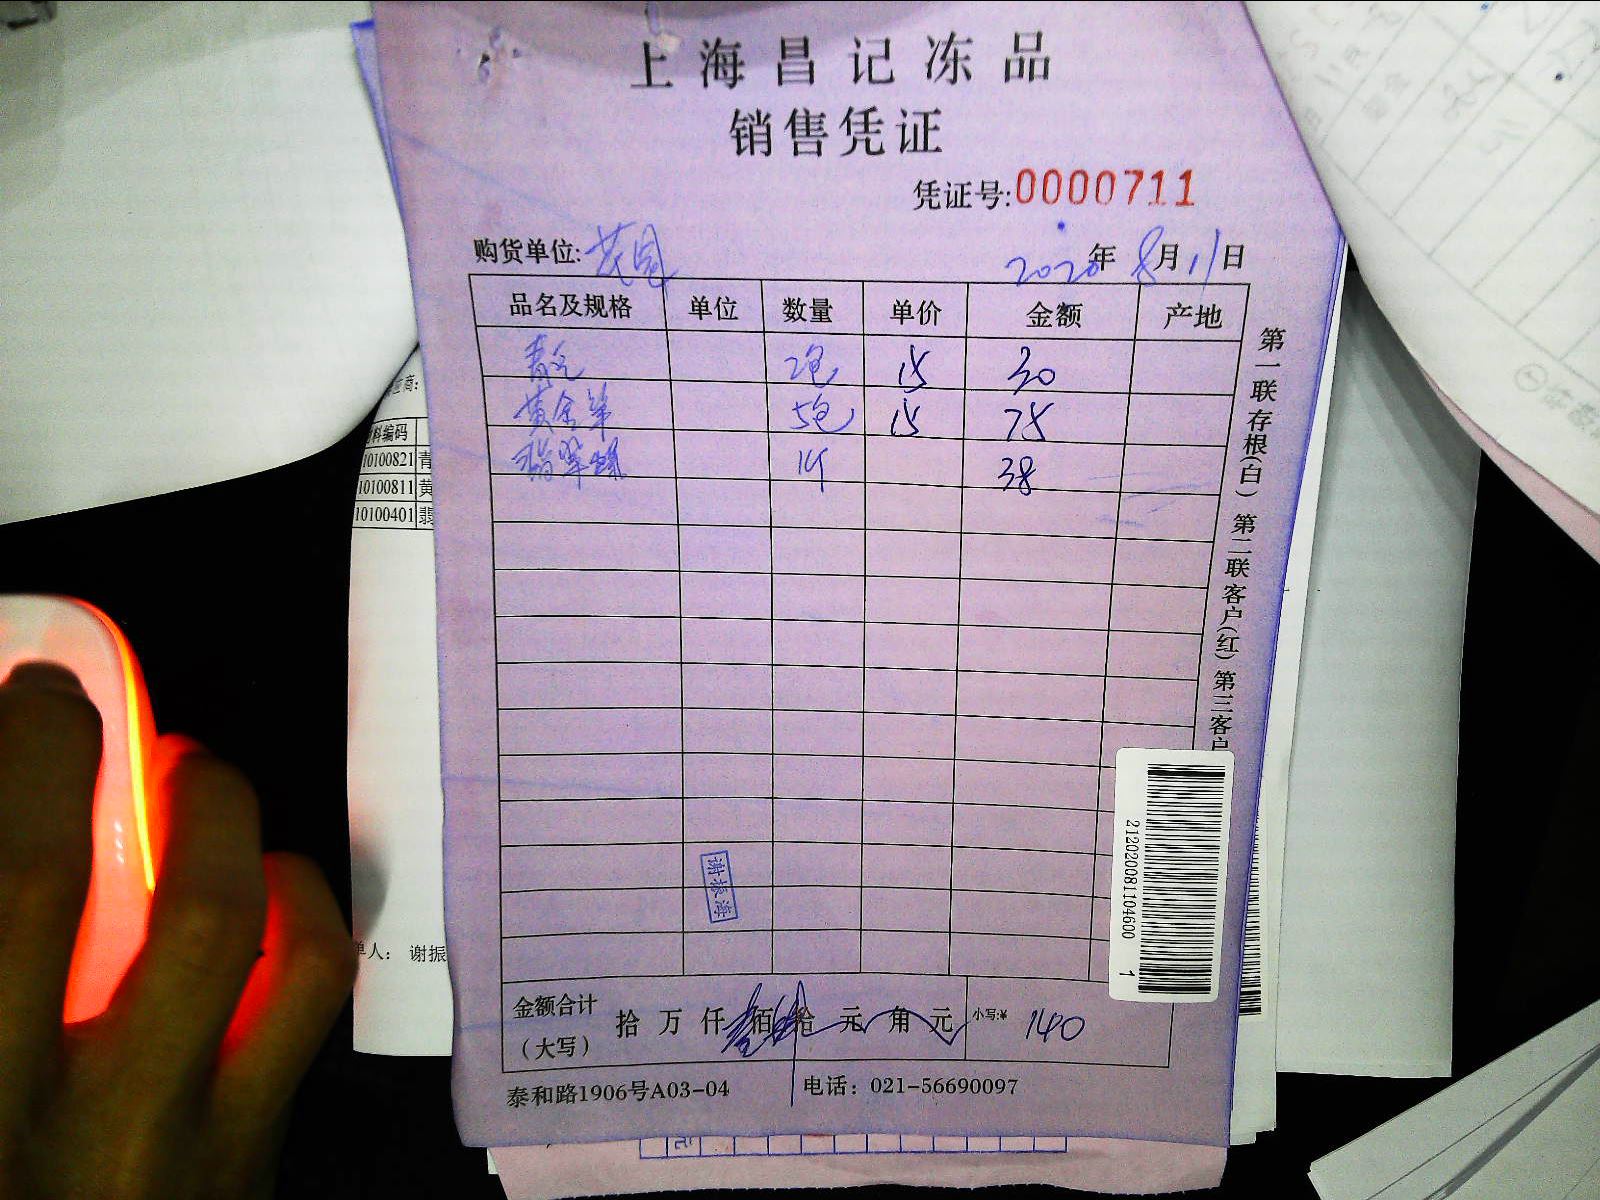 上海昌记冻品
销售凭证
凭证号:0000711
购货单位:
2020年 8月11日
品名及规格 单位 数量 单价 金额 产地
2包 15 30
黄金 5包 15 75
翡翠螺 1斤 38
第一联存根(白) 第二联客户(红) 第三客户
谢振海
212020081104600 1
金额合计(大写) 拾万仟佰拾元角元 小写:¥ 140
泰和路1906号A03-04 电话: 021-56690097
应商:
料编码
10100821 青
10100811 黄
10100401 翡
单人: 谢振